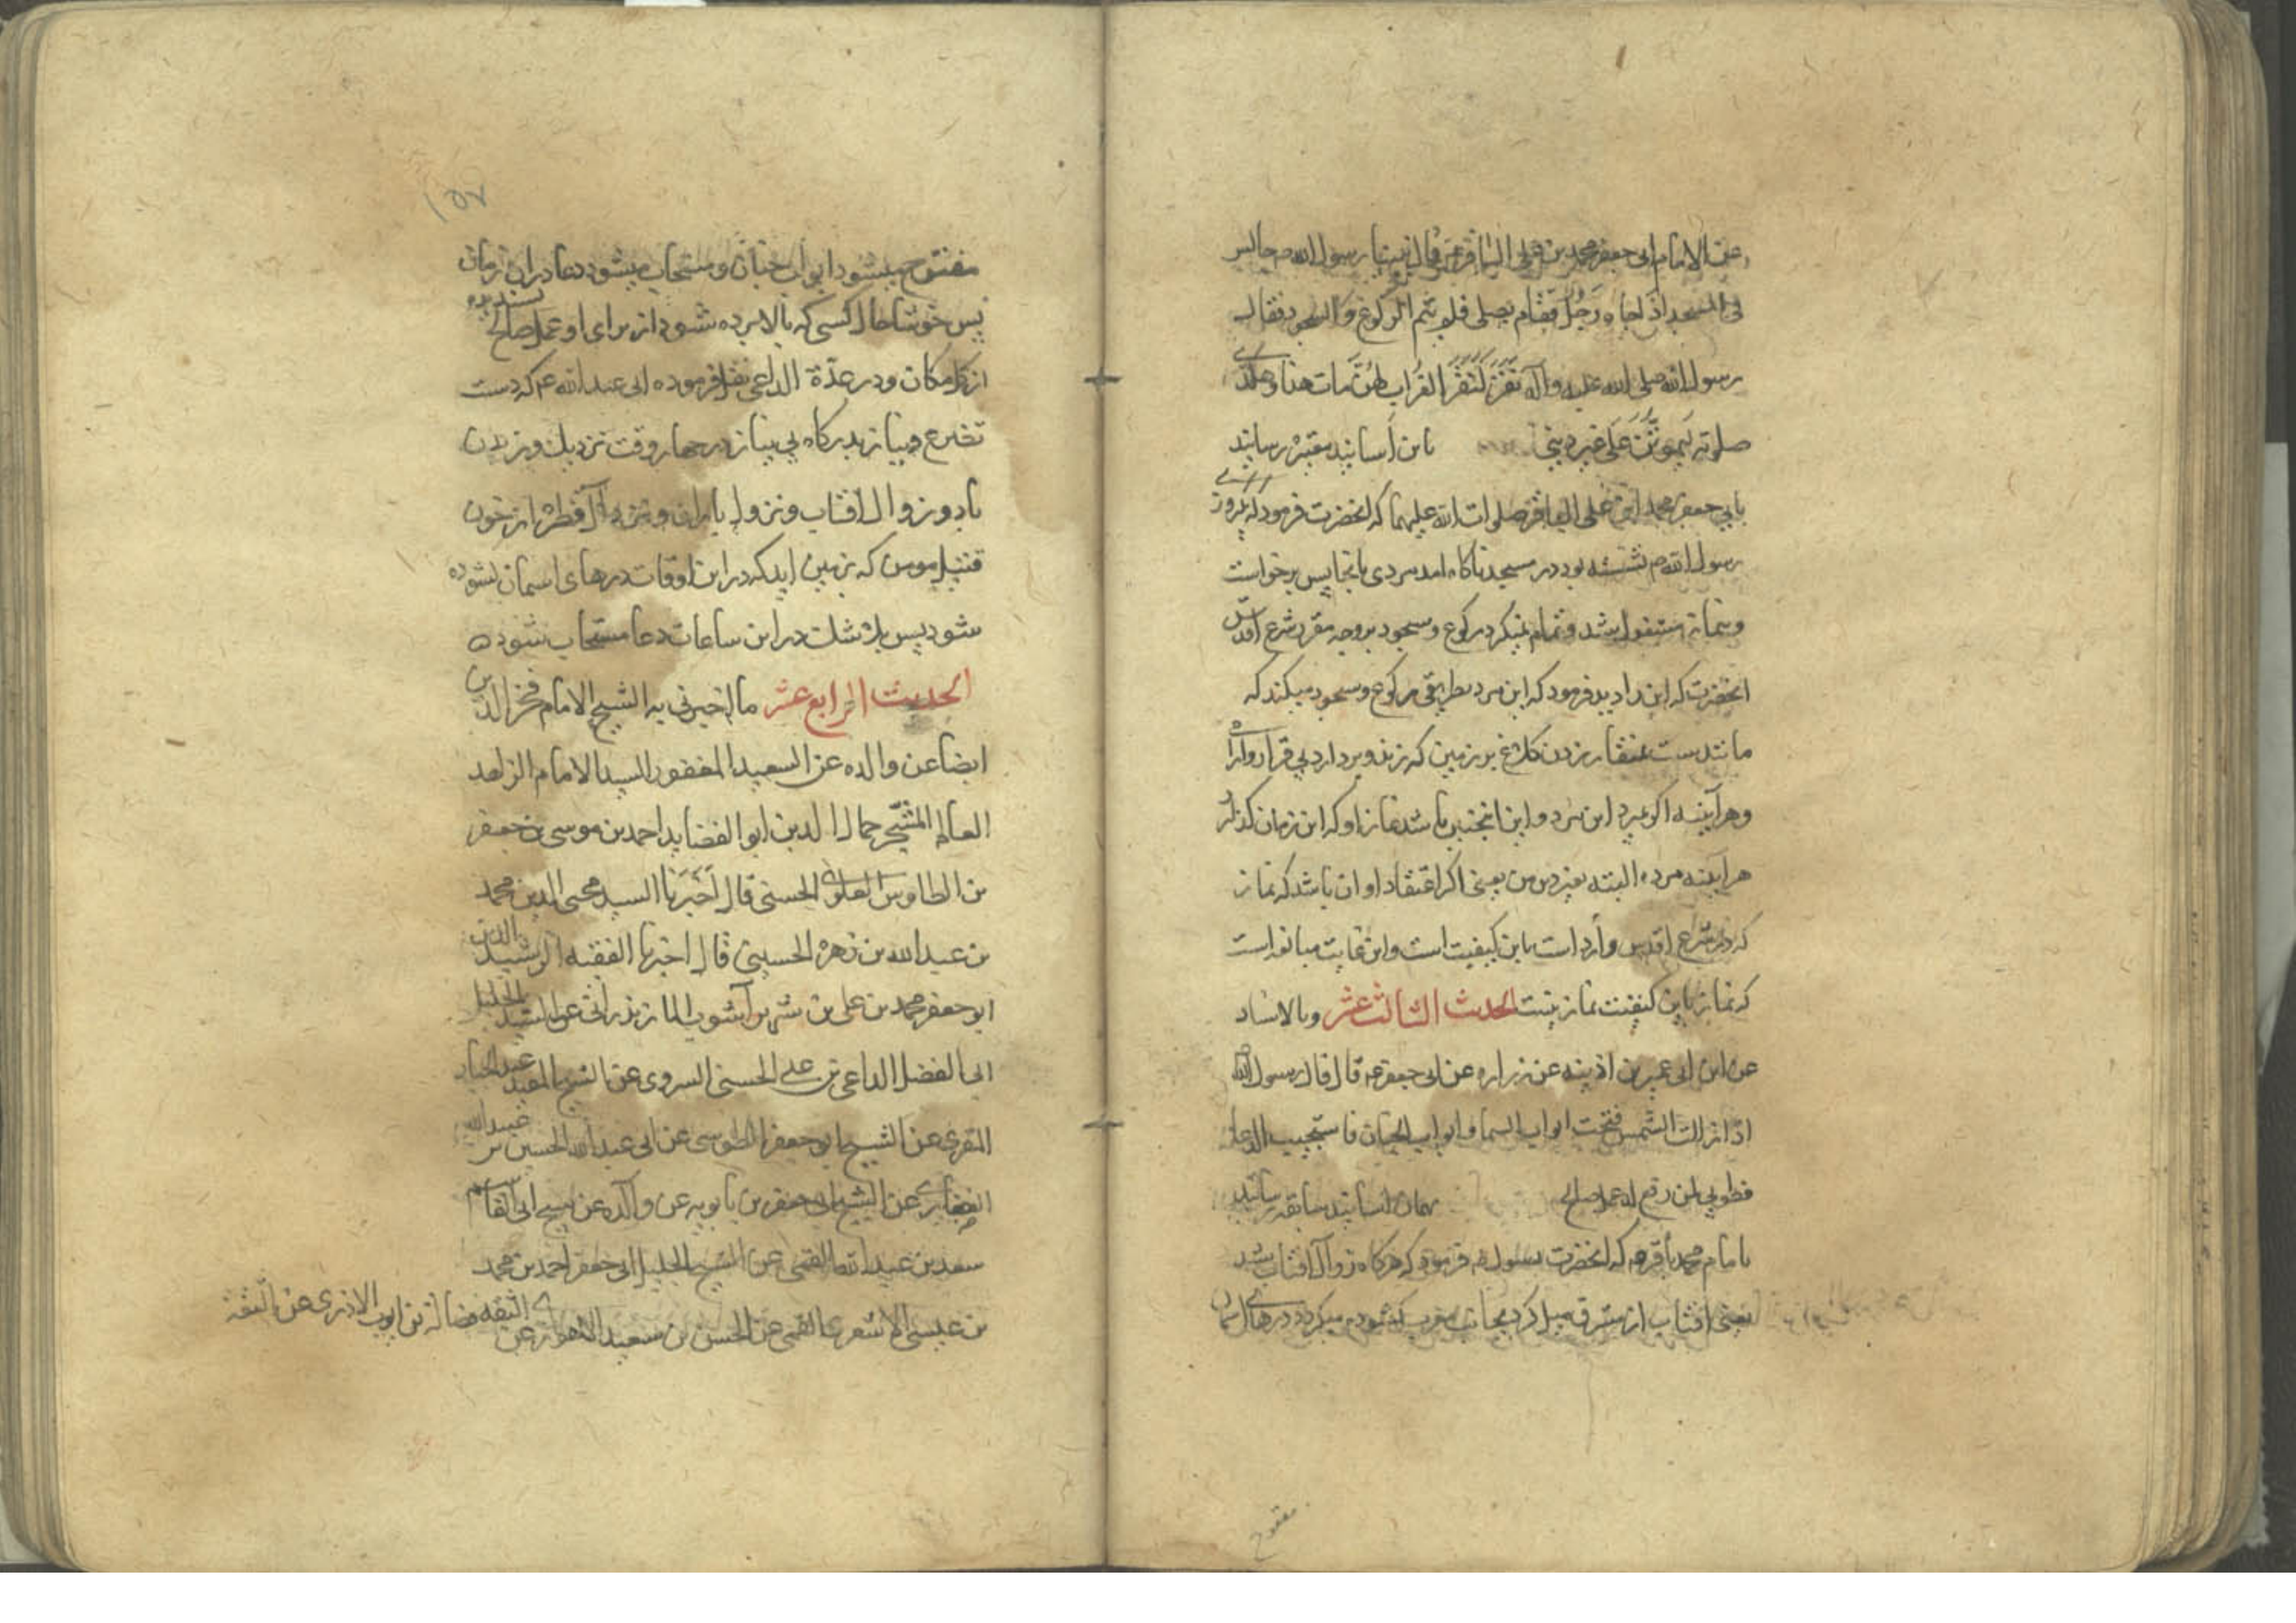 عن الامام ابی جعفر محمد بن علی الباقر ع قال بینا رسول الله ص جالس
فی المسجد اذ جاءه رجل فقام یصلی فلم یتم الرکوع و السجود فقال
رسول الله صلی الله علیه وآله نقر کنقر الغراب لئن مات هذا وهکذا
صلوته لیموتن علی غیر دینی باین اسانید معتبره رسانید
بابی جعفر محمد ابن علی الباقر صلوات الله علیهما که انحضرت فرمود که یکروز
رسول الله ص نشسته بود در مسجد ناکاه امد مردی بانجا پس برخواست
وبنماز مشغول شد و تمام نمیکرد رکوع و سجود بروجه مقرر شرع اقدس
انحضرت که این را دید فرمود که این مرد بطریقی رکوع و سجود میکند که
مانندست بمنقار زدن کلاغ بر زمین که زند و بردارد بی قرار و ارا
وهراینه اکر بمیرد این مرد و این انچنین باشد نماز او که این زمان کذارد
هراینه مرده البته بغیر دین من یعنی اکر اعتقاد او ان باشد که نماز
که در شرع اقدس وارد است باین کیفیت است واین غایت مبالغه است
که نماز باین کیفیت نماز نیست الحدیث الثالث عشر وبالاسناد
عن ابن ابی عمیر بن اذینه عن زراره عن ابی جعفر ع قال قال رسول الله
اذا زالت الشمس فتحت ابواب السما و ابواب الجنان فاستجیب الدعا
فطوبی لمن رفع له عمل صالح بهمان اسانید سابقه رسانید
بامام محمد باقر ع که انحضرت رسول ص فرمود که هرکاه زوال افتاب شد
یعنی افتاب از مشرق میل کرد بجانب مغرب کشوده میکردد درهای اسمان
مفتوح
مفتوح میشود ابواب جنان و مستجاب میشود دعا دران زمان
پس خوشا حال کسی که بالا برده شود از برای او عمل صالح پسندیده
از کل مکان ودر عدة الداعی نقل فرموده ابی عبد الله ع که دست
تضرع و نیاز بدرکاه بی نیاز در چهار وقت نزدیک وزیدن
باد و زوال افتاب و نزول باران و نزد اول قطره از خون
قتیل مومن که بزمین اید که در این اوقات درهای اسمان کشوده
شود پس بلا شک در این ساعات دعا مستجاب شود
الحدیث الرابع عشر ما اخبرنی به الشیخ الامام فخر الدین
ایضا عن والده عن السعید المغفور السید الامام الزاهد
العالم المتبحر جمال الدین ابو الفضایل احمد بن موسی بن جعفر
بن الطاوس العلوی الحسنی قال اخبرنا السید محیی الدین محمد
بن عبد الله بن زهره الحسینی قال اخبرنا الفقیه الرشید الدین
ابو جعفر محمد بن علی بن شهر آشوب المازندرانی عن السید الجلیل
ابی الفضل الداعی بن علی الحسنی السروی عن الشیخ المفید عبد الجبار
المقری عن الشیخ ابو جعفر الطوسی عن ابی عبد الله الحسین بن عبید الله
الغضایری عن الشیخ ابی جعفر بن بابویه عن والده عن شیخ ابی القاسم
سعد بن عبد الله القمی عن الشیخ الجلیل ابی جعفر احمد بن محمد
بن عیسی الاشعری القمی عن الحسین بن سعید الاهوازی عن
الثقه فضالة بن ایوب الازدی عن الثقة